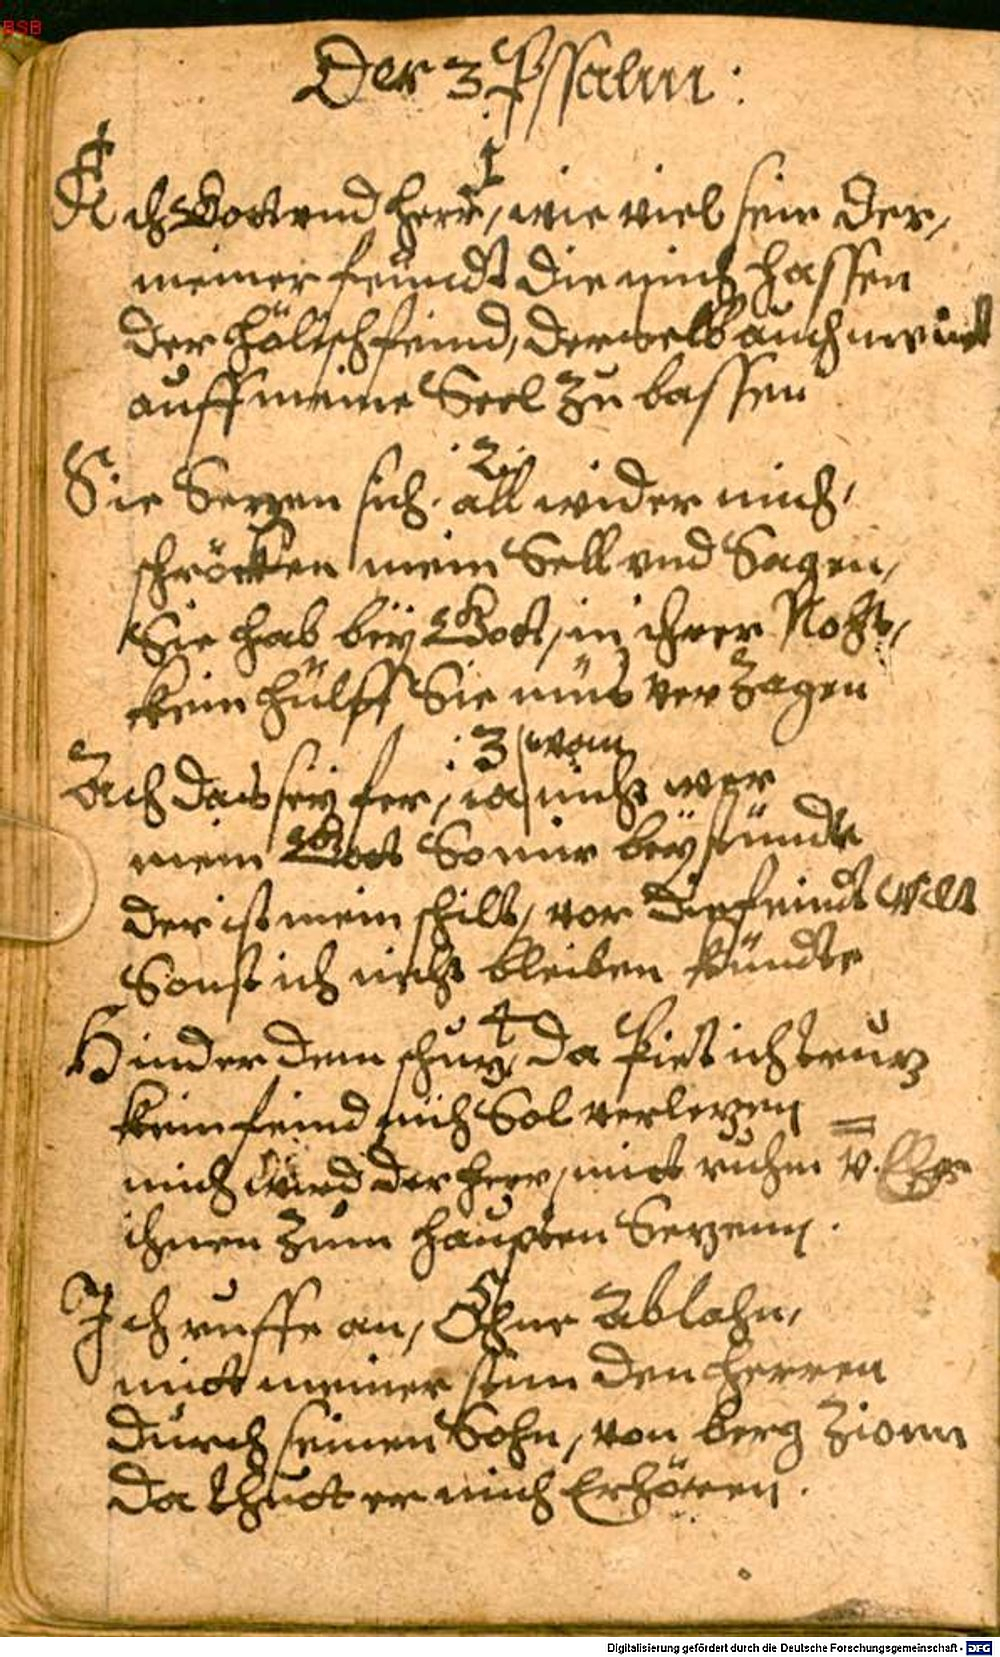 BSB
Der 3 Psalm:
1
Ach Gott vnd Herr, wie viel sein der,
meiner feundt die mich hassen
der hölisch feind, derselb auch
auff meine Seel zu bassen
2.
Sie Sezen sich. all wider mich,
schröcken mein Sell vnd Sagen,
Sie hab beÿ Gott, in ihrer Noth,
kein hülff Sie müs verzagen
3 wan
Ach das seÿ fer, ia nicht wer
mein Gott So mir beÿstündt
der ist mein schilt, vor die feindt
Sonst ich nicht bleiben kündte
4
Hinder dem schuz, da biet ich truz
kein feind mich Sol verlezen
mich wird der herr, mit ruhm v. Ehr
ihnen zum haupten Sezenn.
5
Ich ruffe an, Ohne Ablahn,
mitt meiner stim den herren
durch seinen Sohn, von berg Zionn
da thuet er mich Erhören.
Digitalisierung gefördert durch die Deutsche Forschungsgemeinschaft - DFG